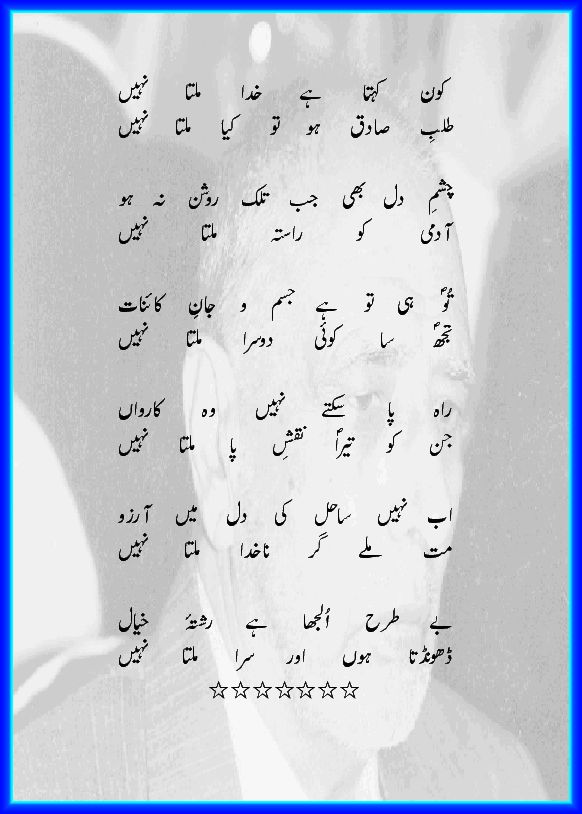 کون کہتا ہے خدا ملتا نہیں
طلبِ صادق ہو تو کیا ملتا نہیں
چشمِ دل بھی جب تلک روشن نہ ہو
آدمی کو راستہ ملتا نہیں
تُوؐ ہی تو ہے جسم و جانِ کائنات
تجھؐ سا کوئی دوسرا ملتا نہیں
راہ پا سکتے نہیں وہ کارواں
جن کو تیراؐ نقشِ پا ملتا نہیں
اب نہیں ساحل کی دل میں آرزو
مت ملے گر ناخدا ملتا نہیں
بے طرح اُلجھا ہے رشتۂ خیال
ڈھونڈتا ہوں اور سرا ملتا نہیں
☆☆☆☆☆☆☆